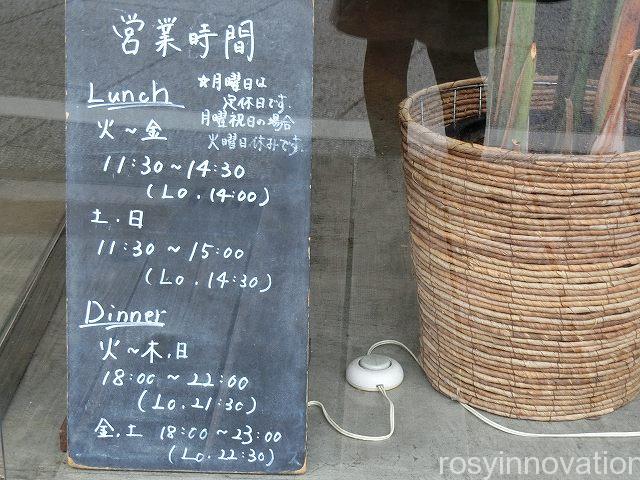 営業時間
Lunch
★月曜日は
定休日です.
月曜祝日の場合
火曜日休みです.
火~金
11:30~14:30
(Lo.14:00)
土.日
11:30~15:00
(Lo.14:30)
Dinner
火~木.日
18:00~22:00
(Lo.21:30)
金.土 18:00~23:00
(Lo.22:30)
rosyinnovation